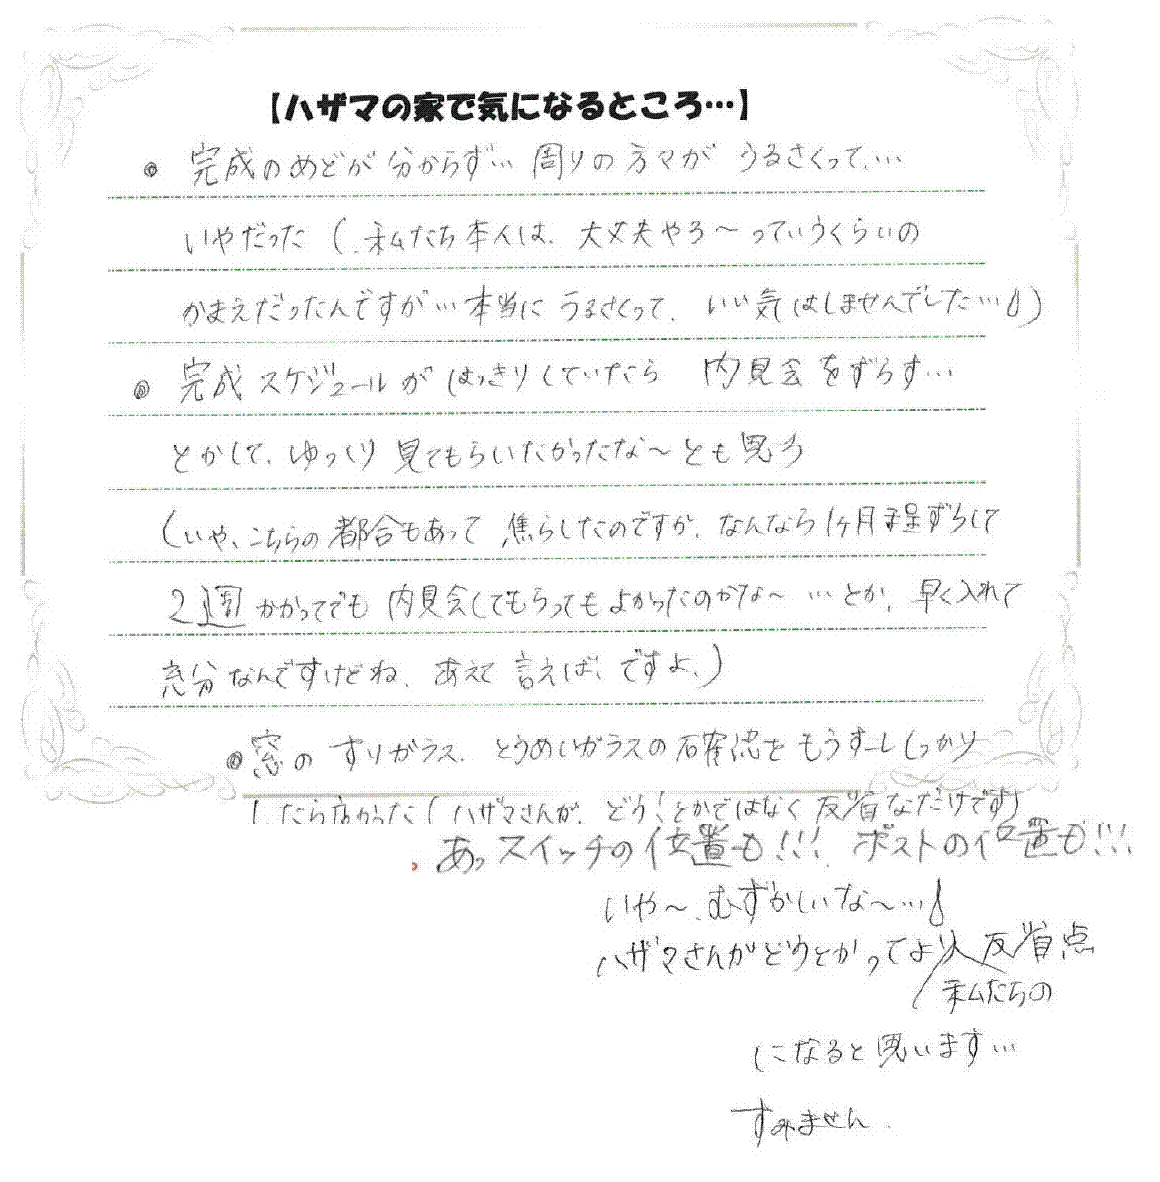 【ハザマの家で気になるところ…】
◎ 完成のめどが分からず… 周りの方々が うるさくって、…
いやだった (、私たち本人は、大丈夫やろ〜っていうくらいの
かまえだったんですが…本当に うるさくって、いい気はしませんでした…)
◎ 完成スケジュールが はっきりしていたら 内見会をずらす…
とかして、ゆっくり 見てもらいたかったな〜とも思う
(いや、こちらの都合もあって、焦らしたのですが、なんなら1ヶ月程ずらして
2週かかってでも 内見会してもらってもよかったのかな〜 …とか、早く入れて
充分なんですけどね、あえて 言えば、ですよ、)
◎窓の すりガラス、とうめいガラスの確認を もうすこーし しっかり
したら良かった (ハザマさんが、どう!とかではなく 反省なだけです)
・あっスイッチの位置も!!! ポストの位置も!!!
いや〜、むずかしいな〜…
ハザマさんがどうとかってより、私たちの反省点
になると思います…
すみません、